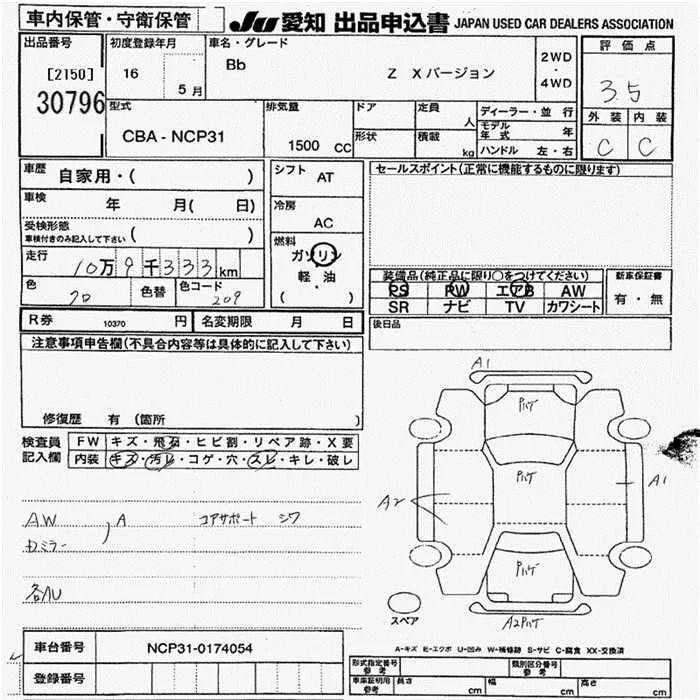 車内保管・守衛保管
JU 愛知 出品申込書 JAPAN USED CAR DEALERS ASSOCIATION
出品番号
[2150]
30796
初度登録年月
16
5月
車名・グレード
Bb
Z Xバージョン
2WD
・
4WD
評価点
3.5
外装 内装
C C
型式
CBA - NCP31
排気量
1500 CC
ドア
形状
定員
人
積載
kg
ディーラー・並 行
モデル年式 年
ハンドル 左・右
車歴
自家用・( )
車検
年 月( 日)
受検形態
車検付きのみ記入して下さい ( )
走行
10万9千333km
色
クロ
色替
色コード
209
シフト
AT
冷房
AC
燃料
ガソリン
・
軽・油
( )
セールスポイント(正常に機能するものに限ります)
装備品(純正品に限り○をつけてください)
PS PW エアB AW
SR ナビ TV カワシート
新車保証書
有・無
後日品
R券 10370 円
名変期限 月 日
注意事項申告欄(不具合内容等は具体的に記入して下さい)
修復歴 有 (箇所 )
検査員
記入欄
FW キズ・飛石・ヒビ割・リペア跡・X要
内装 キズ・汚レ・コゲ・穴・スレ・キレ・破レ
AW
, A
コアサポート シワ
ミラー
各AU
A1
Pハゲ
Pハゲ
A2
A1
Pハゲ
スペア
A2Pハゲ
車台番号 NCP31-0174054
登録番号
A-キズ E-エクボ U-凹み W-補修跡 S-サビ C-腐食 XX-交換済
形式指定番号
参考
類別区分番号
参考
車庫証明用
参考
長さ cm
幅 cm
高さ cm